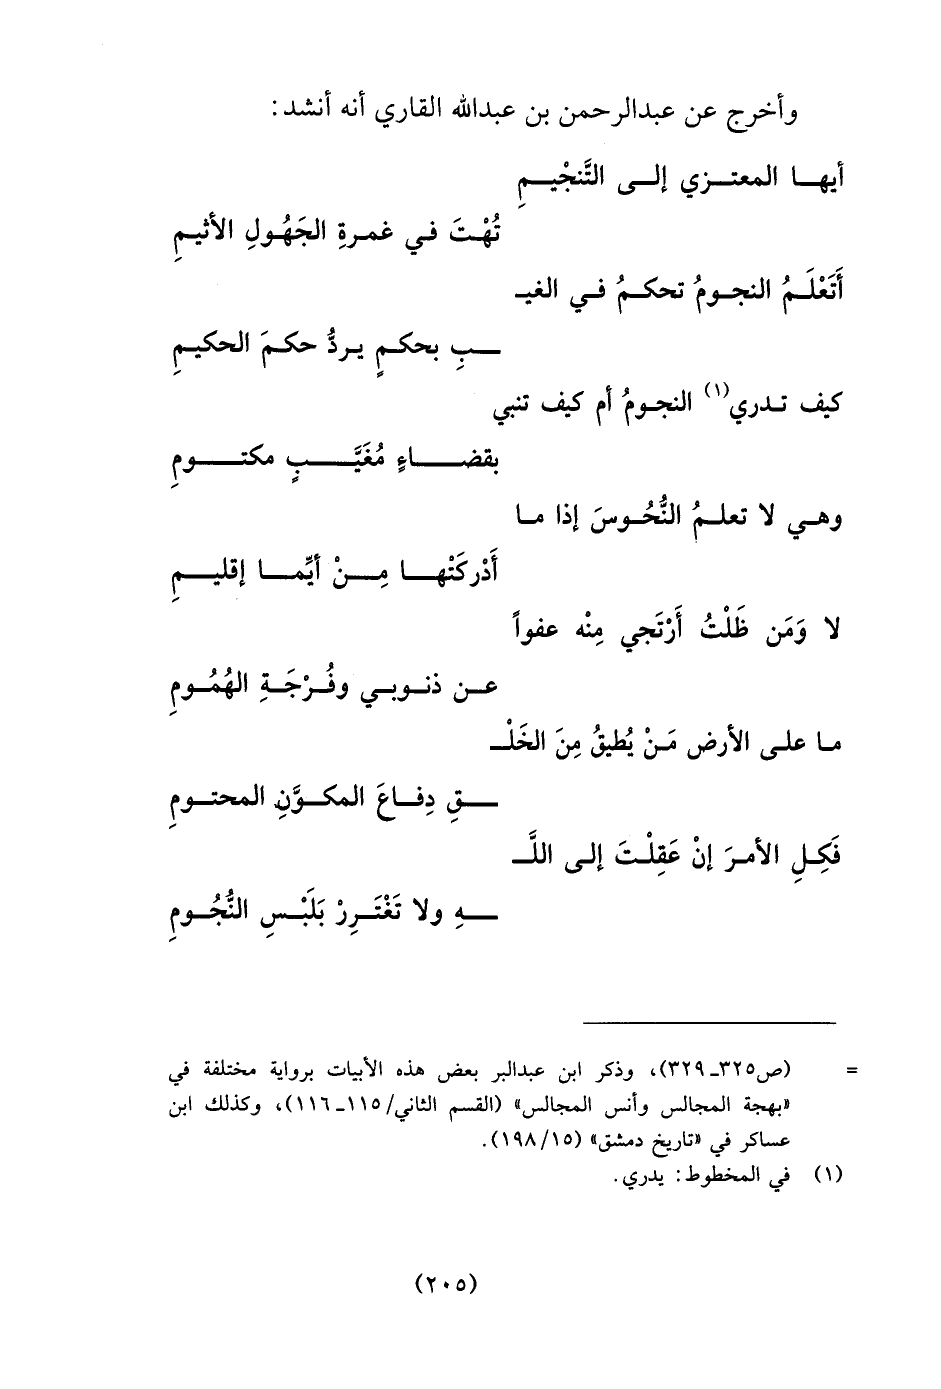 وأخرج عن عبدالرحمن بن عبدالله القاري أنه أنشد:
أيهـا المعتـزي إلـى التَّنجْيـمِ
تُهْـتَ فـي غمـرةِ الجَهُـولِ الأثيـمِ
أَتَعْلَـمُ النجـومُ تحكـمُ فـي الغيـ
ـبِ بحكـمٍ يـردُّ حكـمَ الحكيـمِ
كيف تـدري(١) النجـومُ أم كيف تنبي
بقضـاءٍ مُغَيَّـبٍ مكتـومِ
وهـي لا تعلـمُ النُّحُـوسَ إذا مـا
أَدْركَتْهـا مِـنْ أيِّمـا إقليـمِ
لا وَمَن ظَلْتُ أَرْتَجي مِنْه عفواً
عـن ذنـوبـي وفُـرْجَـةِ الهُمُـومِ
مـا علـى الأرض مَـنْ يُطيقُ مِنَ الخَلْـ
ـقِ دِفـاعَ المكـوَّنِ المحتـومِ
فَكِلِ الأمـرَ إنْ عَقِلْـتَ إلـى اللَّـ
ـهِ ولا تَغْتَـرِرْ بَلَبْـسِ النُّجُـومِ
= (ص٣٢٥ـ٣٢٩)، وذكر ابن عبدالبر بعض هذه الأبيات برواية مختلفة في
«بهجة المجالس وأنس المجالس» (القسم الثاني/١١٥ـ١١٦)، وكذلك ابن
عساكر في «تاريخ دمشق» (١٩٨/١٥).
(١) في المخطوط: يدري.
(٢٠٥)